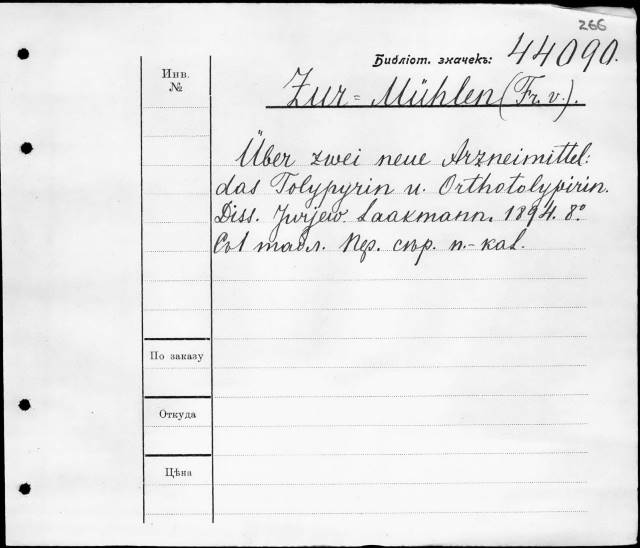 266
Библіот. значекъ: 44090.
Инв.
№
Zur-Mühlen (Fr. v.).
Über zwei neue Arzneimittel:
das Tolypyrin u. Orthotolypirin.
Diss. Jurjew. Laakmann. 1894. 8°.
Съ 1 табл. стр.
По заказу
Откуда
Цѣна